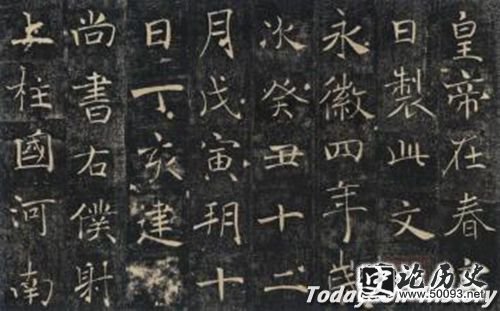 皇帝在春
日製此文
永徽四年歲
次癸丑十二
月戊寅朔十
日丁亥建
尚書右僕射
上柱國河南
论历史
www.50093.net
Today History